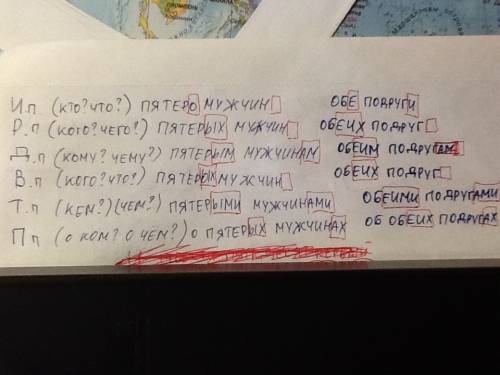 И.п (кто?что?) пятеро мужчин обе подруги
Р.п (кого?чего?) пятерых мужчин обеих подруг
Д.п (кому?чему?) пятерым мужчинам обеим подругам
В.п (кого?что?) пятерых мужчин обеих подруг
Т.п (кем?)(чем?) пятерыми мужчинами обеими подругами
П п (о ком? о чём?) о пятерых мужчинах об обеих подругах